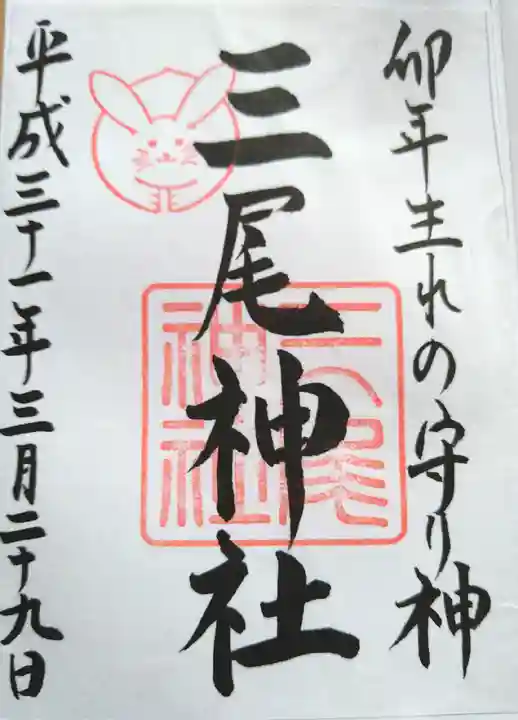 卯年生れの守り神
三尾神社
三尾神社
平成三十一年三月二十九日